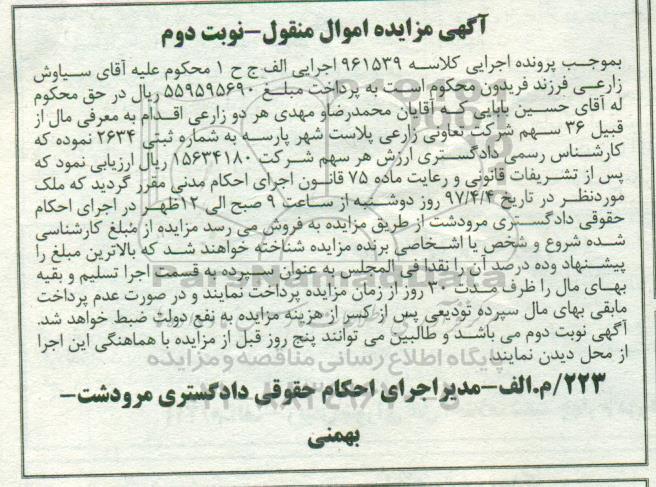 آگهی مزایده اموال منقول-نوبت دوم
بموجب پرونده اجرایی کلاسه ۹۶۱۵۳۹ اجرایی الف.ج ح ۱ محکوم علیه آقای سیاوش
زارعی فرزند فریدون محکوم است به پرداخت مبلغ ۵۵۹۵۹۵۶۹۰ ریال در حق محکوم
له آقای حسین بابایی که آقایان محمدرضاو مهدی هر دو زارعی اقدام به معرفی مال از
قبیل ۳۶ سهم شرکت تعاونی زارعی پلاست شهر پارسه به شماره ثبتی ۲۶۳۴ نموده که
کارشناس رسمی دادگستری ارزش هر سهم شرکت ۱۵۶۳۴۱۸۰ ریال ارزیابی نمود که
پس از تشریفات قانونی و رعایت ماده ۷۵ قانون اجرای احکام مدنی مقرر گردید که ملک
موردنظر در تاریخ ۹۷/۴/۴ روز دوشنبه از ساعت ۹ صبح الی ۱۲ظهر در اجرای احکام
حقوقی دادگستری مرودشت از طریق مزایده به فروش می رسد مزایده از مبلغ کارشناسی
شده شروع و شخص یا اشخاصی برنده مزایده شناخته خواهند شد که بالاترین مبلغ را
پیشنهاد وده درصد آن را نقدا فی المجلس به عنوان سپرده به قسمت اجرا تسلیم و بقیه
بهای مال را ظرف مدت ۳۰ روز از زمان مزایده پرداخت نمایند و در صورت عدم پرداخت
مابقی بهای مال سپرده تودیعی پس از کسر از هزینه مزایده به نفع دولت ضبط خواهد شد.
آگهی نوبت دوم می باشد و طالبین می توانند پنج روز قبل از مزایده با هماهنگی این اجرا
از محل دیدن نمایند.
پایگاه اطلاع رسانی مناقصه و مزایده
۲۲۳/م.الف-مدیراجرای احکام حقوقی دادگستری مرودشت-
بهمنی